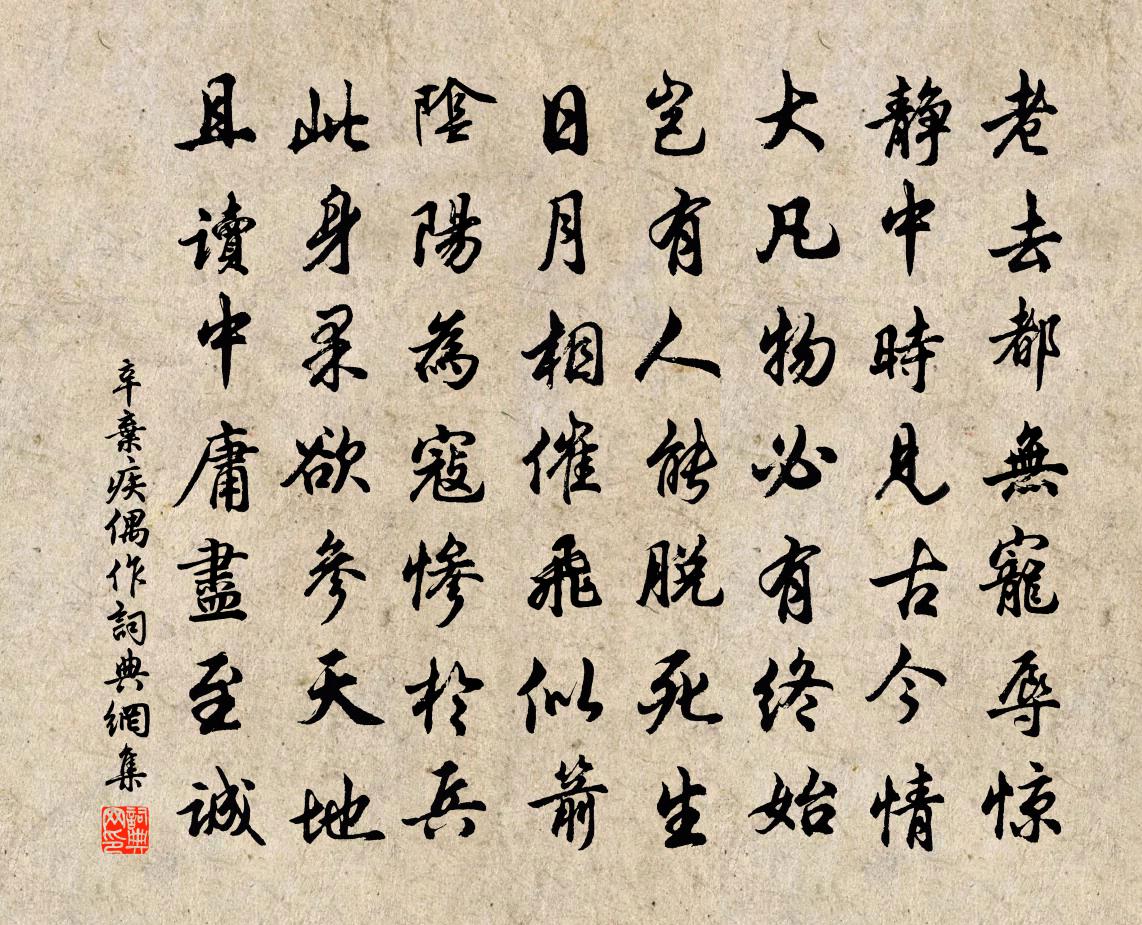 老去都無寵辱惊
静中時見古今情
大凡物必有終始
豈有人能脱死生
日月相催飛似箭
陰陽為寇惨於兵
此身果欲參天地
且讀中庸盡至誠
辛棄疾偶作詞典網集
詞典網印